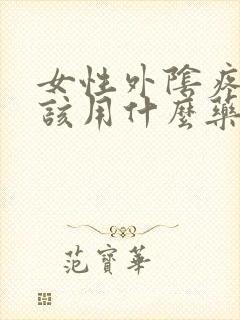 女性外陰疾
該用什麼藥
范寶華